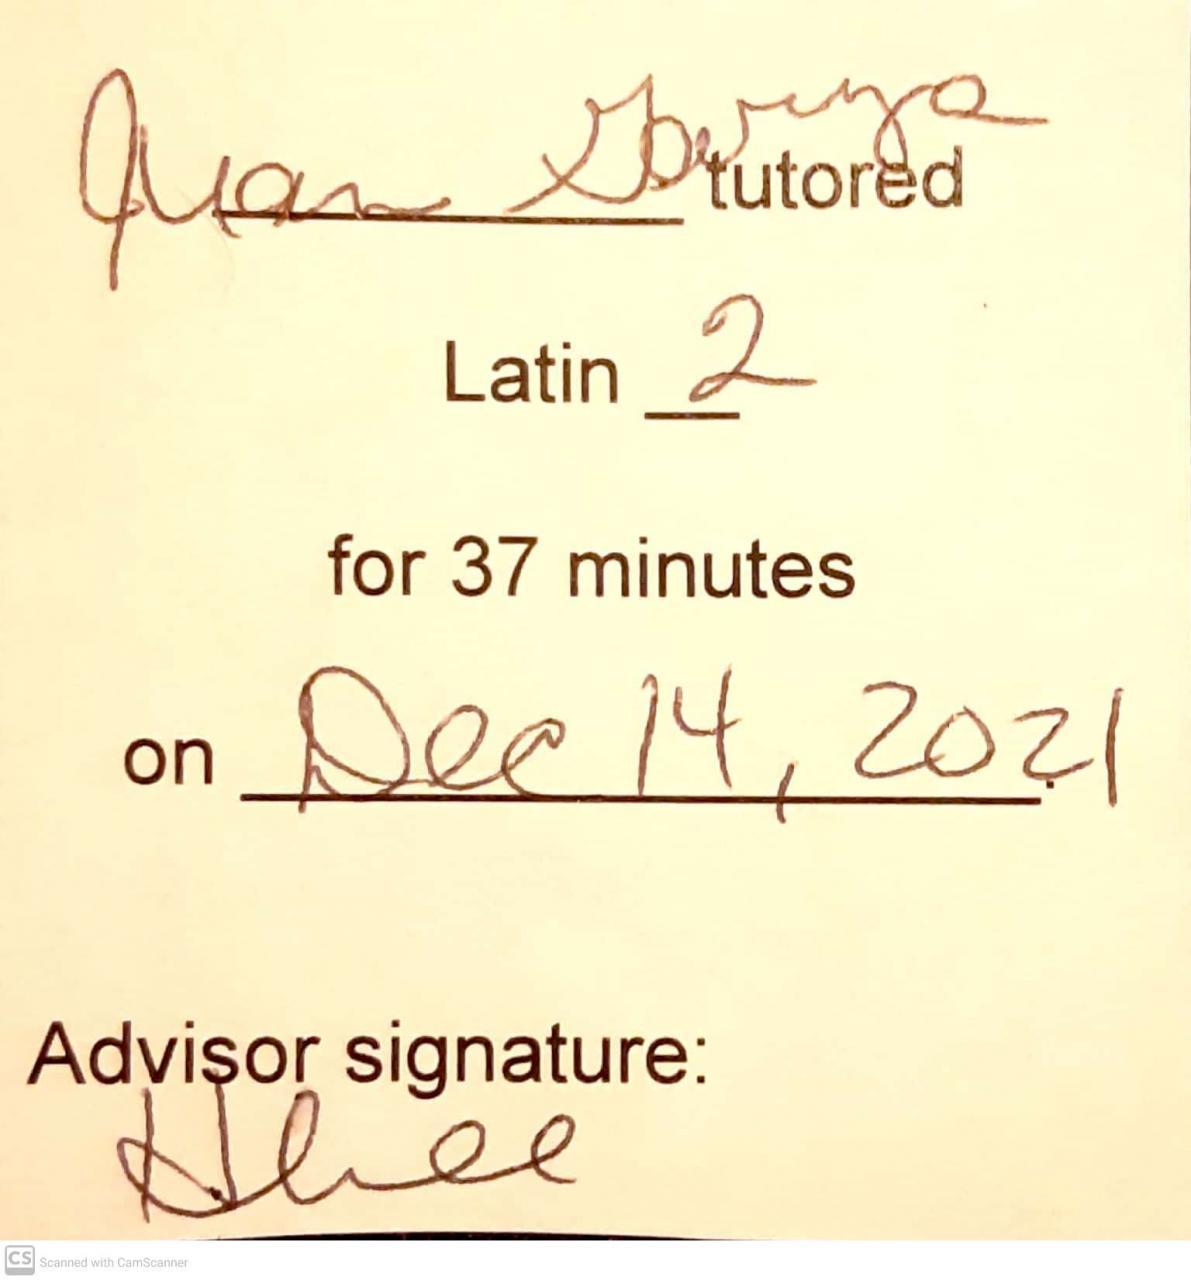 Juan tutored
Latin 2
for 37 minutes
on Dec 14, 2021.
Advisor signature:
CS Scanned with CamScanner